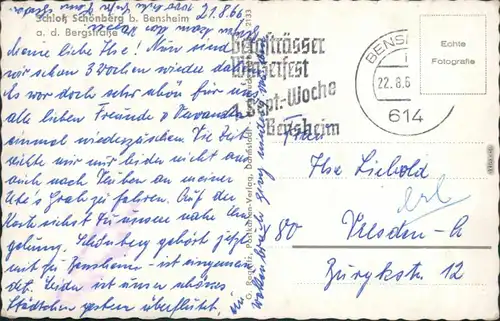 Schloß Schönberg b. Bensheim
a. d. Bergstraße
21.8.66
Meine liebe Ilse! Nun sind
wir schon 3 Wochen wieder daheim
Es war doch sehr schön für uns
alle lieben Freunde u. Verwandte
einmal wiederzusehen. Die Zeit
reichte mir nur leider nicht aus
auch nach Guben an meiner
Ete's Grab zu fahren. Auf der
Karte siehst Du unsere nahe Um
gebung. Schönberg gehört jetzt
mit zu Bensheim - ist eingemein
det. Leider ist unser schönes
Städtchen gestern überflutet,
wolkenbruch ging
Bergsträsser
Winzerfest
1. Sept.-Woche
Bensheim
BENSHEIM
22.8.6
614
Echte
Fotografie
Frau
Ilse Liebold
erl
X 80 Dresden-A
Zurgkstr 12
Postkarten-Verlag, Darmstadt
2133